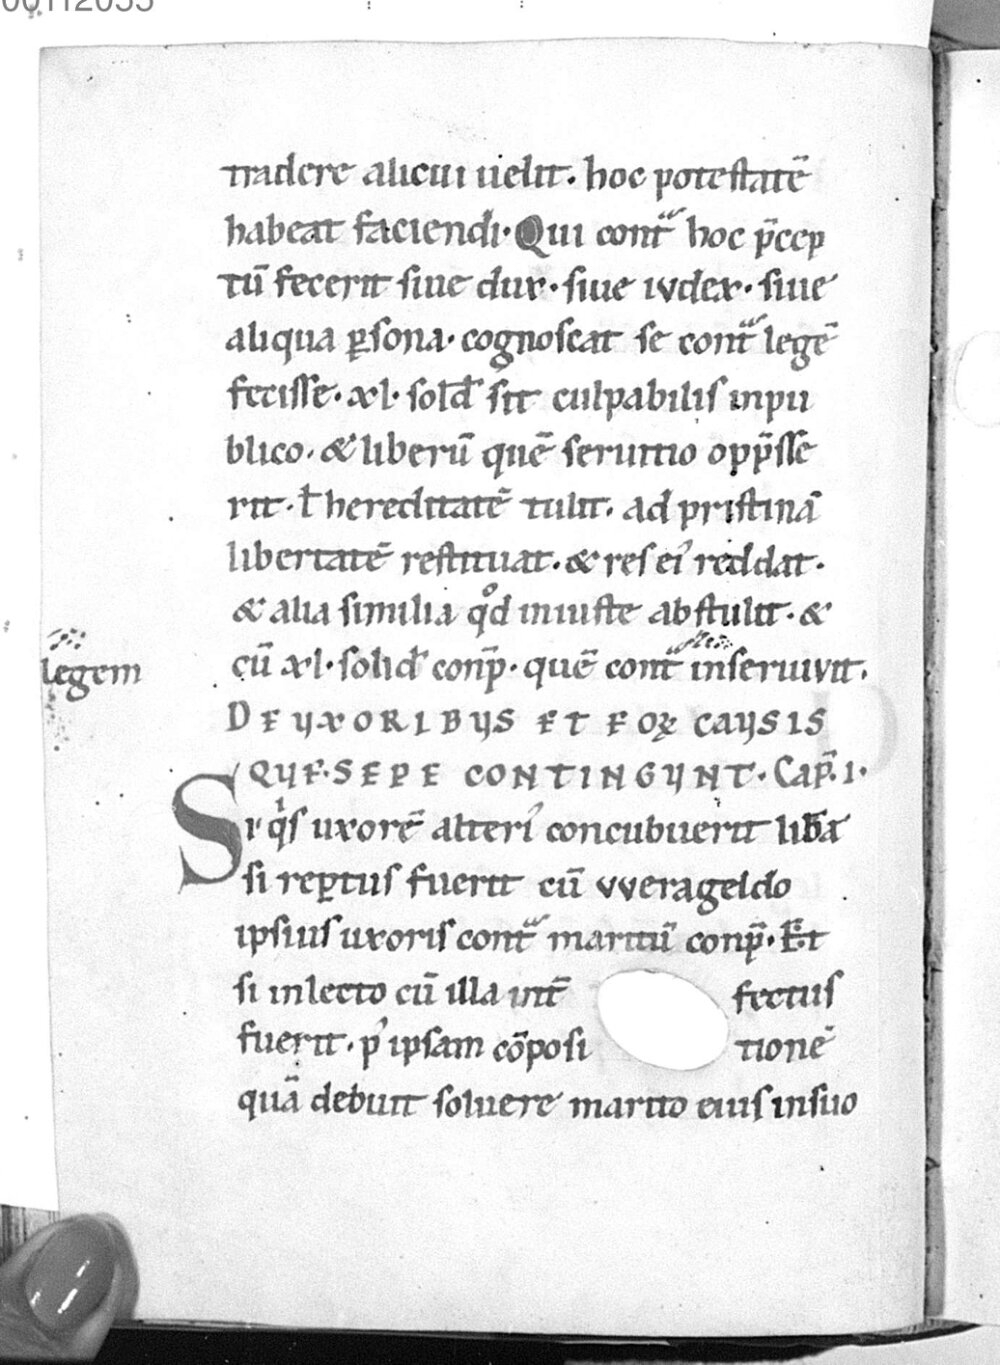 tradere alicui uelit. hoc potestatē
habeat faciendi. Qui contᵃ hoc p̄cep
tū fecerit siue dux. siue iudex. siue
aliqua ꝑsona. cognoscat se contᵃ legē
fecisse. xl. sold̄ sit culpabilis inpu
blico. & liberū quē seruitio opp̄sse
rit. ł hereditatē tulit. ad pristinā
libertatē restituat. & res ei reddat.
& alia similia qͦd iniuste abstulit. &
legem
cū xl. solid̄ conp̄. quē contᵃ inseruiuit.
DE UXORIBUS ET EOꝝ CAUSIS
QUE SEPE CONTINGUNT. CAP̄. I.
Si qͥs uxorē alteri concubuerit lib̄a
si reꝑtus fuerit cū vverageldo
ipsius uxoris contᵃ maritū conp̄. Et
si inlecto cū illa int̄fectus
fuerit. p ipsam cōpositionē
quā debuit soluere marito eius insuo